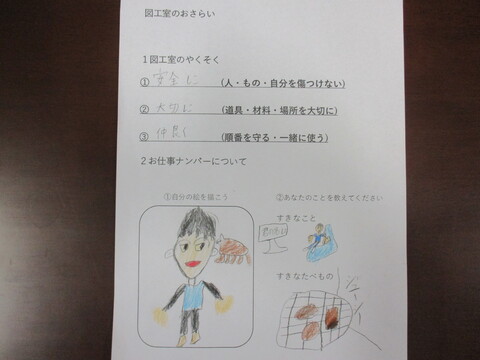 図工室のおさらい
1図工室のやくそく
① 安全に (人・もの・自分を傷つけない)
② 大切に (道具・材料・場所を大切に)
③ 仲良く (順番を守る・一緒に使う)
2お仕事ナンバーについて
①自分の絵を描こう
②あなたのことを教えてください
すきなこと
すきなたべもの
ジューシー